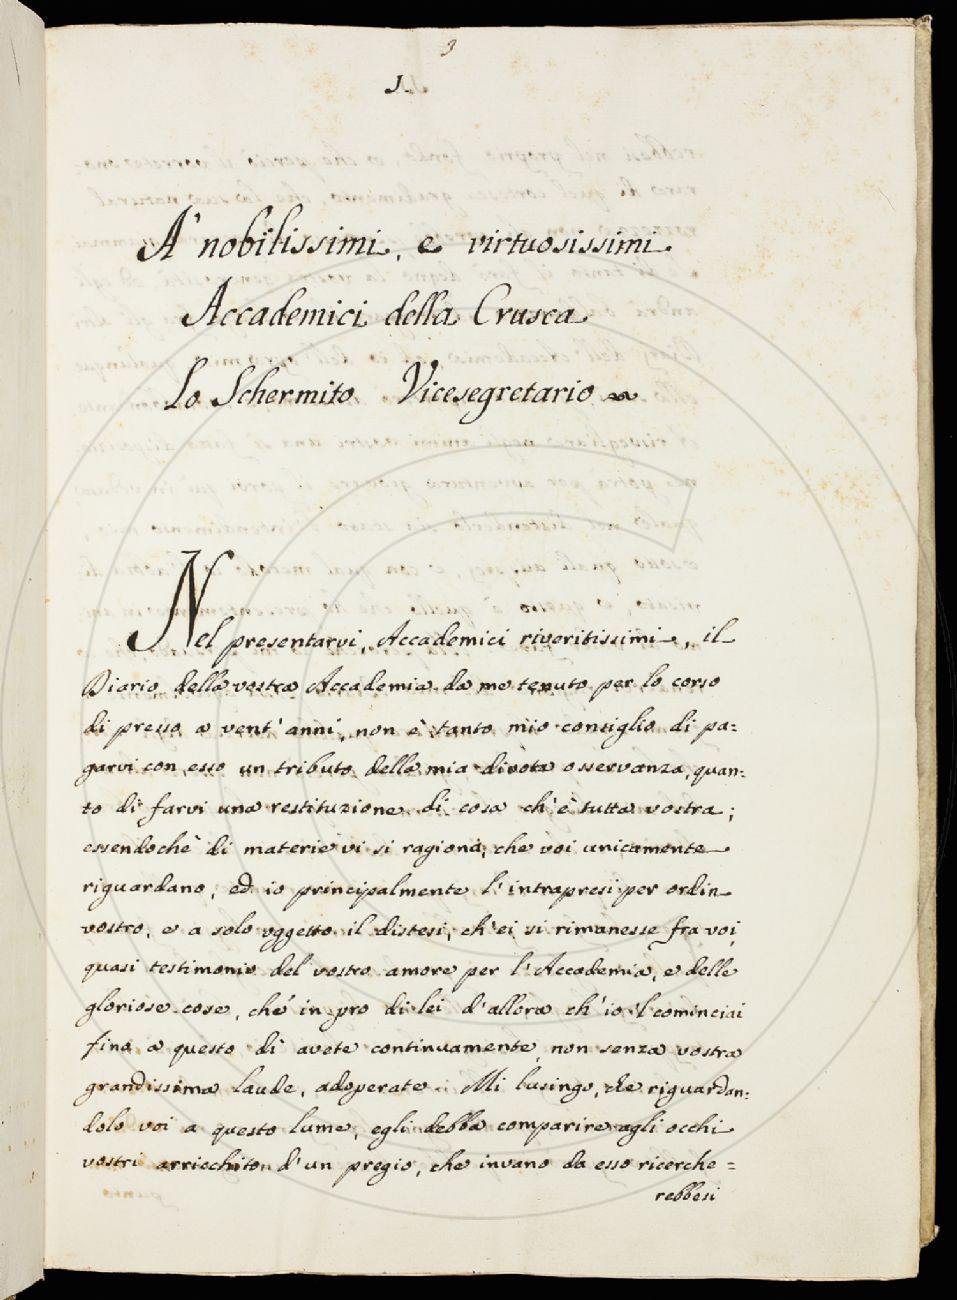 3
1.
A' nobilissimi, e virtuosissimi
Accademici della Crusca
Lo Schermito Vicesegretario
Nel presentarvi, Accademici riveritissimi, il
Diario della vostra Accademia da me tenuto per lo corso
di presso a vent' anni, non è tanto mio consiglio di pa=
garvi con esso un tributo della mia divota osservanza, quan=
to di farvi una restituzione di cosa ch'è tutta vostra;
essendochè di materie vi si ragiona, che voi unicamente
riguardano, ed io principalmente l'intrapresi per ordin
vostro, e a solo oggetto il distesi, ch'ei si rimanesse fra voi
quasi testimonio del vostro amore per l'Accademia, e delle
gloriose cose, che in pro di lei d'allora ch'io 'l cominciai
fina a questo dì avete continuamente, non senza vostra
grandissima laude, adoperate. Mi lusingo, che riguardan=
dolo voi a questo lume, egli debba comparire agli occhi
vostri arricchito d'un pregio, che invano da esso ricerche=
rebbesi